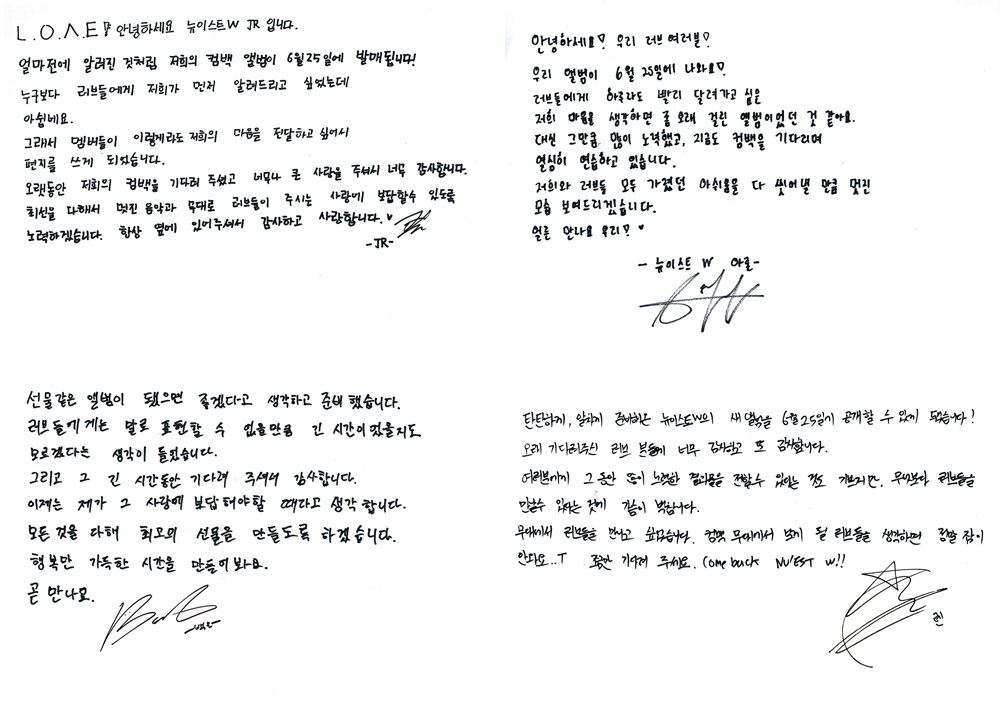 L.O.Λ.E 들 안녕하세요 뉴이스트W JR 입니다.
얼마전에 알려진 것처럼 저희의 컴백 앨범이 6월25일에 발매됩니다!
누구보다 러브들에게 저희가 먼저 알려드리고 싶었는데
아쉽네요.
그래서 멤버들이 이렇게라도 저희의 마음을 전달하고 싶어서
편지를 쓰게 되었습니다.
오랫동안 저희의 컴백을 기다려 주셨고 너무나 큰 사랑을 주셔서 너무 감사합니다.
최선을 다해서 멋진 음악과 무대로 러브들이 주시는 사랑에 보답할수 있도록
노력하겠습니다. 항상 옆에 있어주셔서 감사하고 사랑합니다.♥
-JR-
안녕하세요? 우리 러브 여러분?
우리 앨범이 6월 25일에 나와요?
러브들에게 하루라도 빨리 달려가고 싶은
저희 마음을 생각하면 좀 오래 걸린 앨범이었던 것 같아요.
대신 그만큼 많이 노력했고, 지금도 컴백을 기다리며
열심히 연습하고 있습니다.
저희와 러브들 모두 가졌던 아쉬움을 다 씻어낼 만큼 멋진
모습 보여드리겠습니다.
얼른 만나요 우리? ♥
- 뉴이스트 W 아론-
선물같은 앨범이 됐으면 좋겠다고 생각하고 준비 했습니다.
러브들에게는 말로 표현할 수 없을만큼 긴 시간이었을지도
모르겠다는 생각이 들었습니다.
그리고 그 긴 시간동안 기다려 주셔서 감사합니다.
이제는 제가 그 사랑에 보답해야할 때라고 생각 합니다.
모든 것을 다해 최고의 선물을 만들도록 하겠습니다.
행복만 가득한 시간을 만들어 봐요.
곧 만나요.
-백호-
탄탄하게, 알차게 준비해온 뉴이스트W의 새 앨범을 6월25일에 공개할 수 있게 되었습니다!
오래 기다려주신 러브 분들께 너무 감사하고 또 감사합니다.
여러분에게 그 동안 많이 노력한 결과물을 전할수 있다는 것도 기쁘지만, 무엇보다 러브들을
만날수 있다는 것에 가슴이 벅찹니다.
무대에서 러브들을 만나고 싶습니다. 컴백 무대에서 보게 될 러브들을 생각하면 정말 잠이
안와요..T 조금만 기다려 주세요. Come back NU'EST W!!
렌